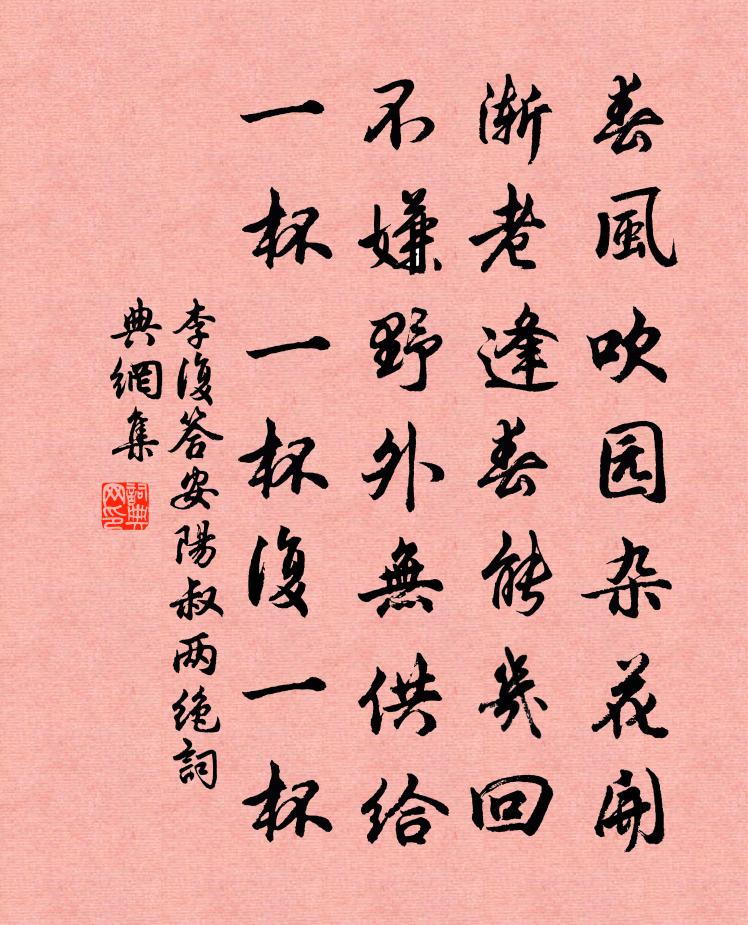 春風吹园杂花開
漸老逢春能幾回
不嫌野外無供给
一杯一杯復一杯
李復答安陽叔两绝詞
典網集
詞典
网印